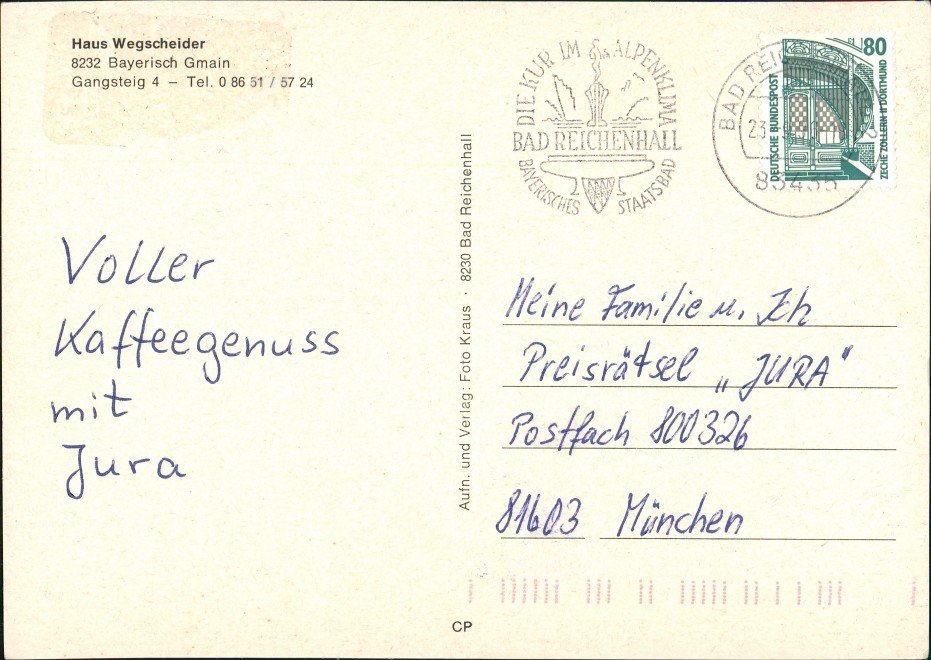 Haus Wegscheider
8232 Bayerisch Gmain
Gangsteig 4 – Tel. 0 86 51 / 57 24
DIE KUR IM ALPENKLIMA
BAD REICHENHALL
BAYERISCHES STAATSBAD
BAD
23
83435
80
DEUTSCHE BUNDESPOST
ZECHE ZOLLERN II DORTMUND
Voller
Kaffeegenuss
mit
Jura
Aufn. und Verlag: Foto Kraus · 8230 Bad Reichenhall
Meine Familie u. Ich
Preisrätsel „JURA"
Postfach 800326
81603 München
CP